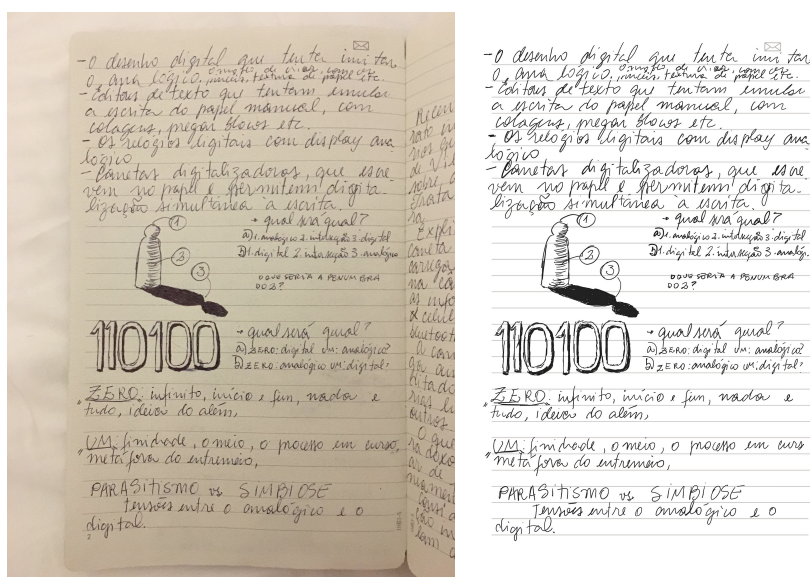 - O desenho digital que tenta imitar
o analógico. pincéis, textura de papel etc.
- Editores de texto que tentam emular
a escrita do papel manual, com
colagens, pregar blocos etc.
- Os relógios digitais com display ana
lógico
- Canetas digitalizadoras, que escre
vem no papel e permitem digita
lização simultânea à escrita.
1
2
3
→ qual será qual?
a) 1. analógico 2. interseção 3. digital
b) 1. digital 2. interseção 3. analógico
O QUE SERIA A PENUMBRA
DO 3?
110100
→ qual será qual?
a) ZERO: digital UM: analógico?
b) ZERO: analógico UM: digital?
"ZERO: infinito, início e fim, nada e
tudo, ideia do além,
"UM: finidade, o meio, o processo em curso,
metáfora do entremeio,
PARASITISMO vs SIMBIOSE
Tensões entre o analógico e o
digital.
2
- O desenho digital que tenta imitar
o analógico. pincéis, textura de papel etc.
- Editores de texto que tentam emular
a escrita do papel manual, com
colagens, pregar blocos etc.
- Os relógios digitais com display ana
lógico
- Canetas digitalizadoras, que escre
vem no papel e permitem digita
lização simultânea à escrita.
1
2
3
→ qual será qual?
a) 1. analógico 2. interseção 3. digital
b) 1. digital 2. interseção 3. analógico
O QUE SERIA A PENUMBRA
DO 3?
110100
→ qual será qual?
a) ZERO: digital UM: analógico?
b) ZERO: analógico UM: digital?
"ZERO: infinito, início e fim, nada e
tudo, ideia do além,
"UM: finidade, o meio, o processo em curso
metáfora do entremeio,
PARASITISMO vs SIMBIOSE
Tensões entre o analógico e o
digital.